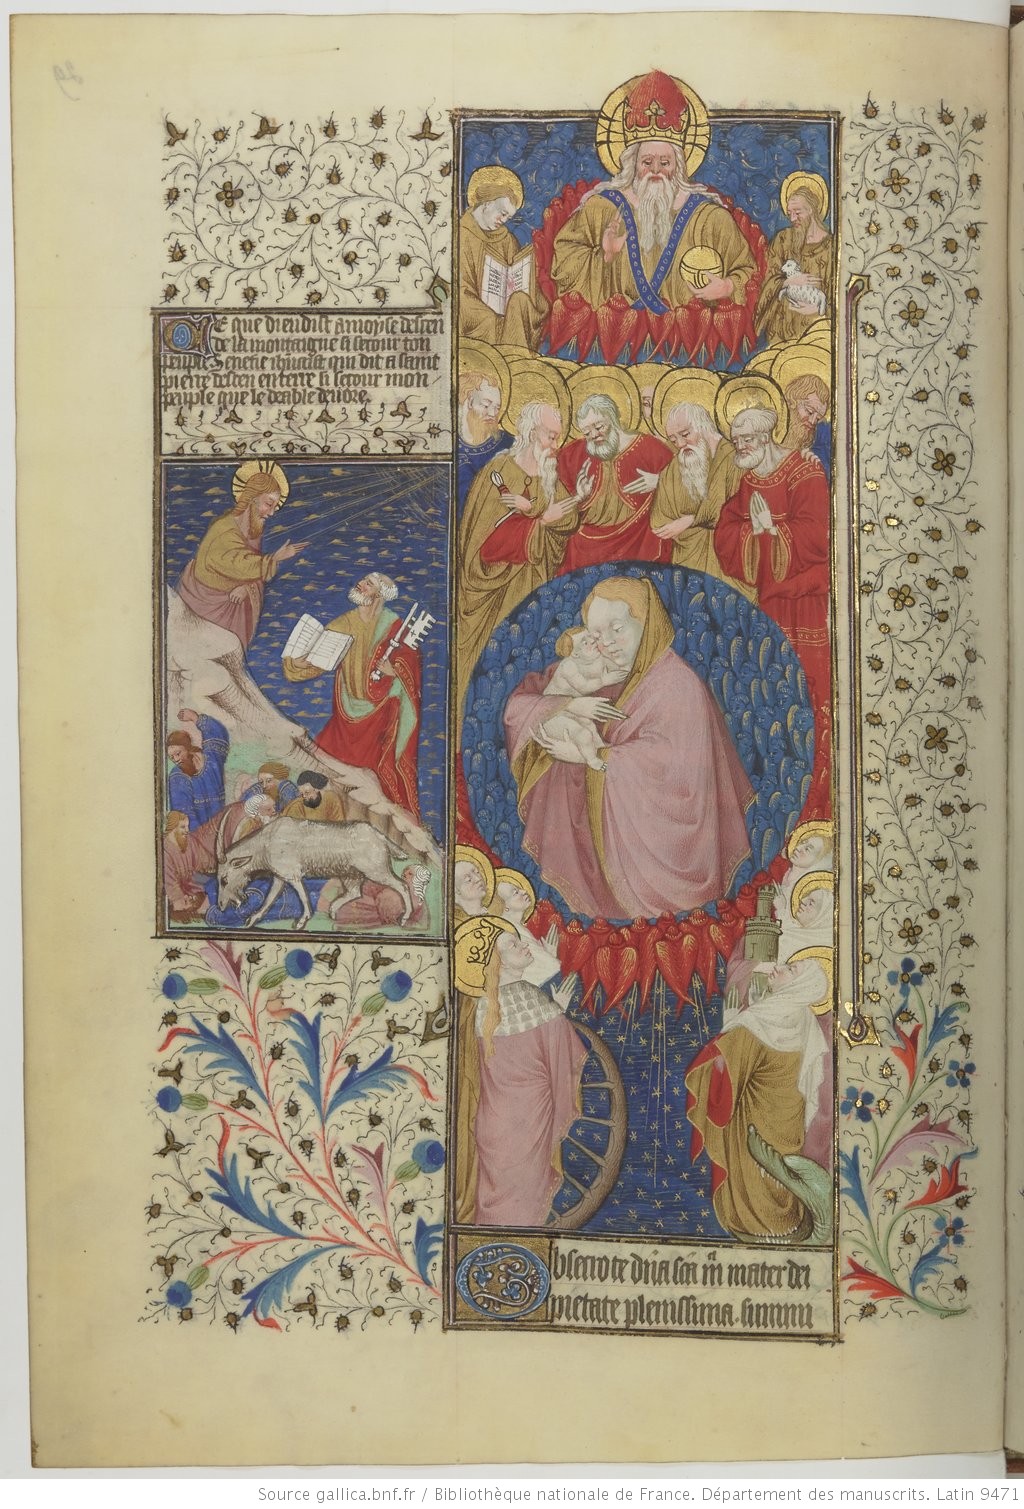 Ce que dieu dist a moyse descen
de la montaigne si secour ton
peuple Senefie ihucrist qui dit a saint
pierre descen en terre si secour mon
peuple que le deable deuore.
Obsecro te dña scā mͣ mater dei
pietate plenissima. summi
Source gallica.bnf.fr / Bibliothèque nationale de France. Département des manuscrits. Latin 9471